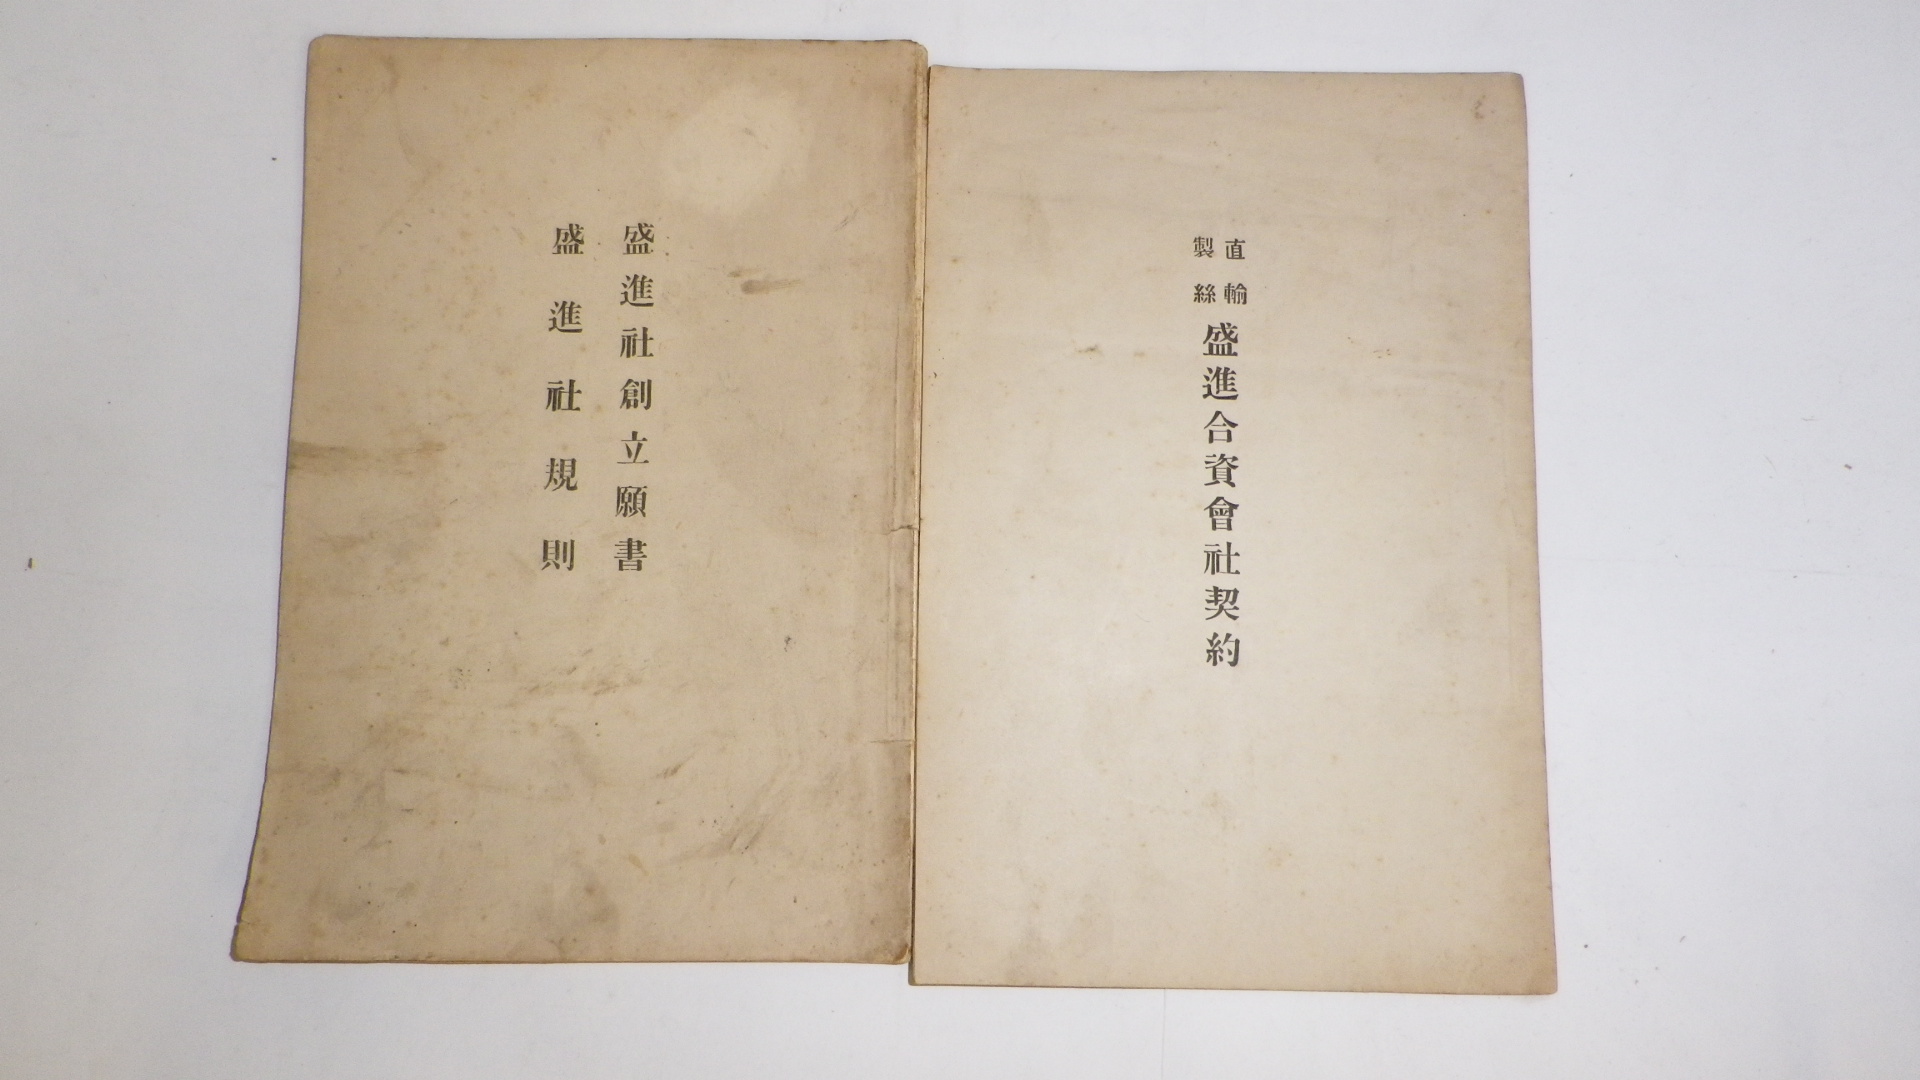 直輸
製絲
盛進合資會社契約
盛進社創立願書
盛進社規則